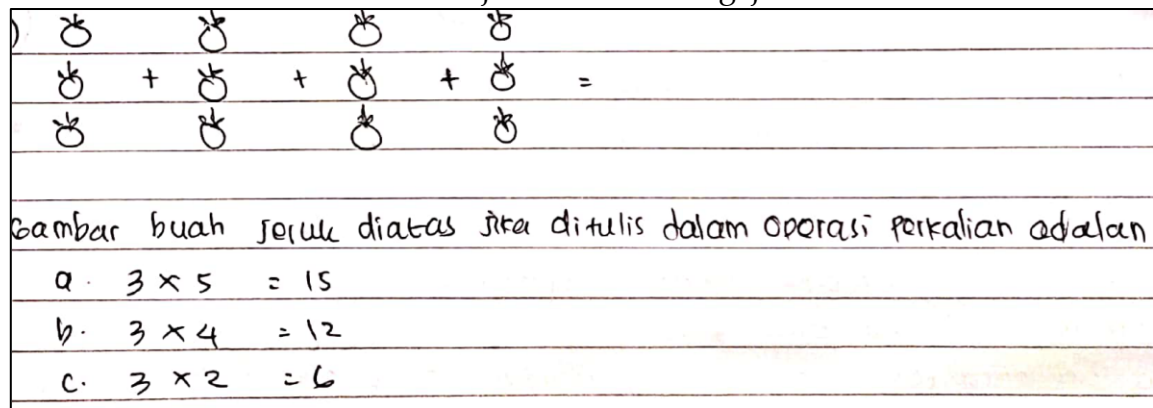 )
+ + + =
Gambar buah jeruk diatas jika ditulis dalam operasi perkalian adalan
a. 3 × 5 = 15
b. 3 × 4 = 12
c. 3 × 2 = 6